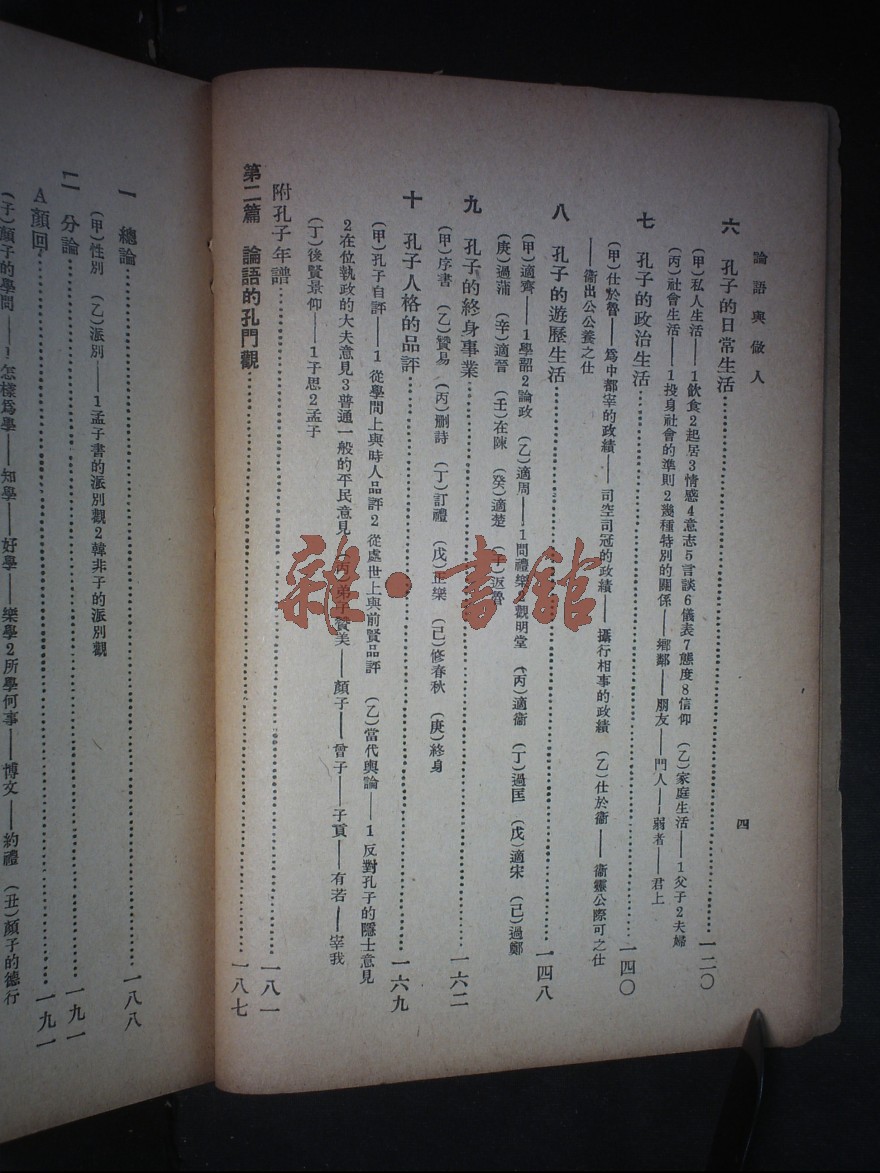 論語與做人
四
六　孔子的日常生活……一二〇
(甲)私人生活——1飲食2起居3情感4意志5言談6儀表7態度8信仰　(乙)家庭生活——1父子2夫婦
(丙)社會生活——1投身社會的準則2幾種特別的關係——鄉鄰——朋友——門人——弱者——君上
七　孔子的政治生活……一四〇
(甲)仕於魯——爲中都宰的政績——司空司冠的政績——攝行相事的政績　(乙)仕於衞——衞靈公際可之仕
——衞出公公養之仕
八　孔子的遊歷生活……一四八
(甲)適齊——1學韶2論政　(乙)適周——1問禮樂2觀明堂　(丙)適衞　(丁)過匡　(戊)適宋　(己)過鄭
(庚)過蒲　(辛)適晉　(壬)在陳　(癸)適楚　(子)返魯
九　孔子的終身事業……一六二
(甲)序書　(乙)贊易　(丙)删詩　(丁)訂禮　(戊)正樂　(己)修春秋　(庚)終身
十　孔子人格的品評……一六九
(甲)孔子自評——1從學問上與時人品評2從處世上與前賢品評　(乙)當代輿論——1反對孔子的隱士意見
2在位執政的大夫意見3普通一般的平民意見　(丙)弟子贊美——顏子——曾子——子貢——有若——宰我
(丁)後賢景仰——1子思2孟子
附孔子年譜……一八一
第二篇　論語的孔門觀……一八七
一　總論……一八八
(甲)性別　(乙)派別——1孟子書的派別觀2韓非子的派別觀
二　分論……一九一
A顏回……一九一
(子)顏子的學問——1怎樣爲學——知學——好學——樂學2所學何事——博文——約禮　(丑)顏子的德行
雜·書館